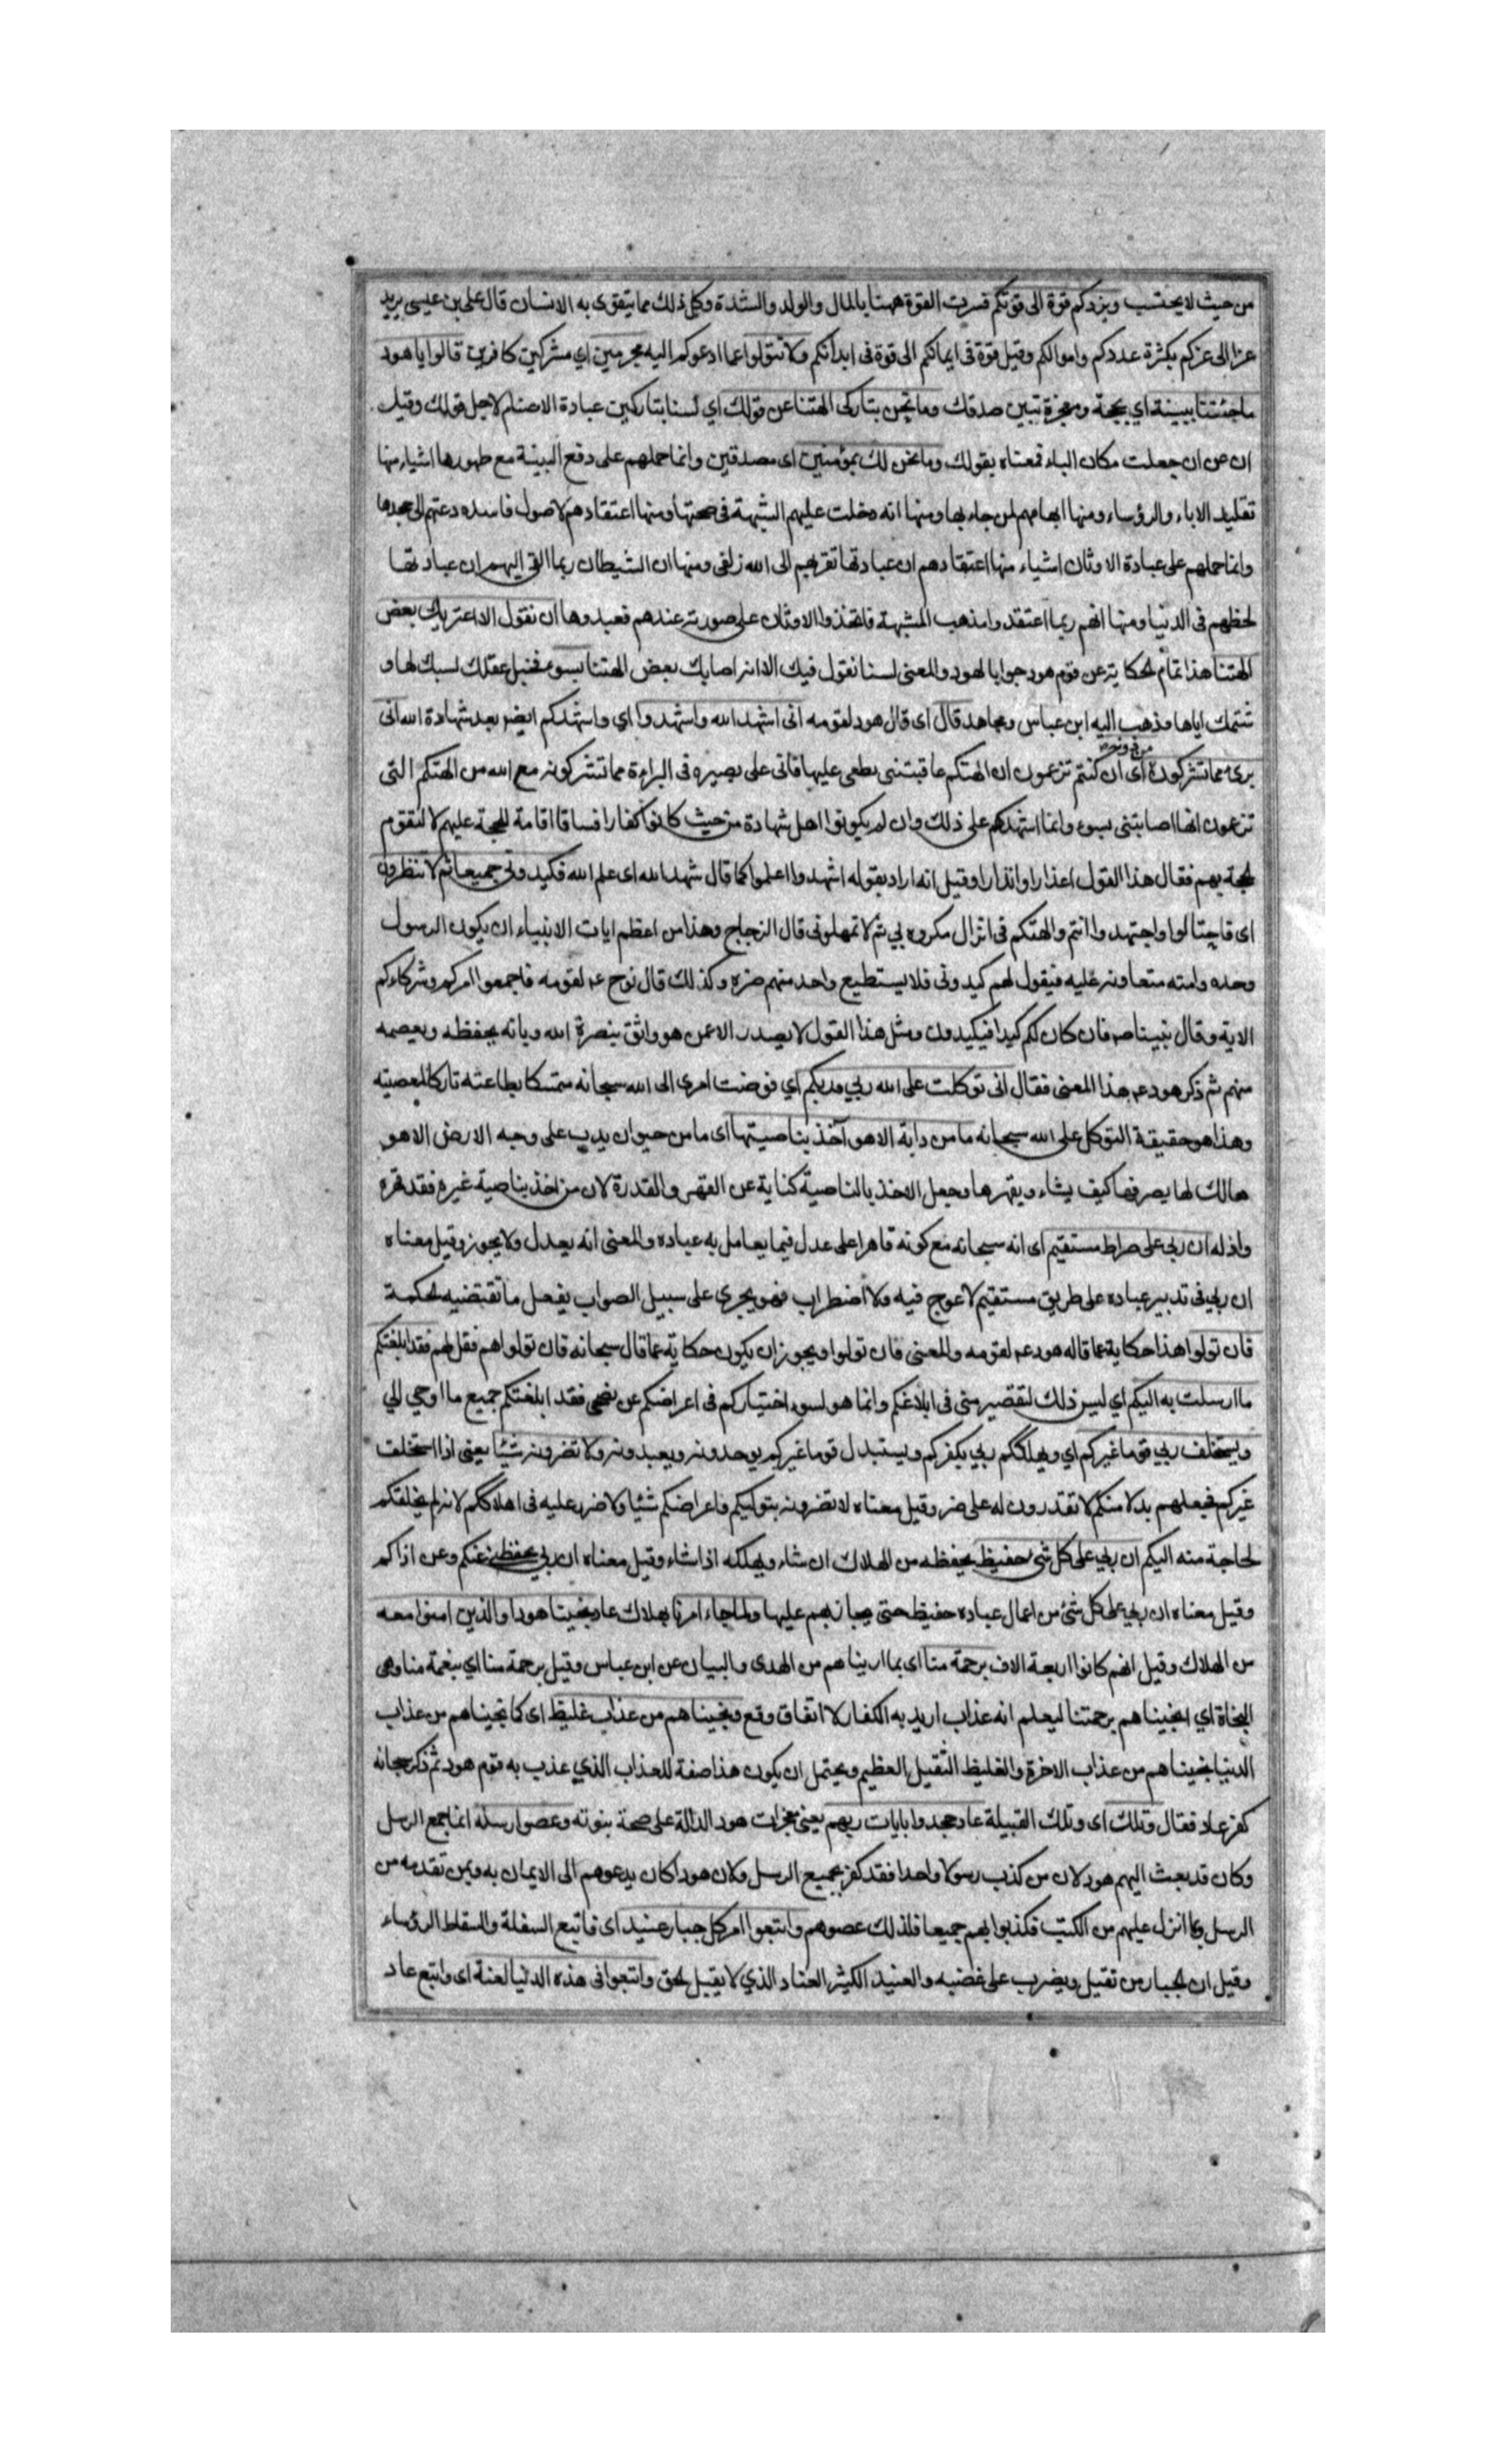 من حيث لا يحتسب ويزدكم قوة الى قوتكم فسرت القوة ههنا بالمال والولد والشدة وكل ذلك مما يتقوى به الانسان قال على بن عيسى يريد
عزا الى عزكم بكثرة عددكم واموالكم وقيل قوة فى ايمانكم الى قوة فى ابدانكم ولا تتولوا عما ادعوكم اليه مجرمين اي مشركين كافرين قالوا يا هود
ما جئتنا ببينة اي بحجة ومعجزة تبين صدقك وما نحن بتاركى الهتنا عن قولك اي لسنا بتاركين عبادة الاصنام لاجل قولك وقيل
ان عن ان جعلت مكان الباء فمعناه بقولك وما نحن لك بمؤمنين اى مصدقين وانما حملهم على دفع البينة مع ظهورها اشياء منها
تقليد الاباء والرؤساء ومنها اتهامهم لمن جاء بها ومنها انه دخلت عليهم الشبهة فى صحتها ومنها اعتقادهم لاصول فاسده دعتهم الى جحدها
وانما حملهم على عبادة الاوثان اشياء منها اعتقادهم ان عبادتها تقربهم الى الله زلفى ومنها ان الشيطان ربما القى اليهم ان عبادتها
لحظهم فى الدنيا ومنها انهم ربما اعتقدوا مذهب المشبهة فاتخذوا الاوثان على صورته عندهم فعبدوها ان نقول الا اعتريك بعض
الهتنا هذا تمام الحكاية عن قوم هود جوابا لهود والمعنى لسنا نقول فيك الا انه اصابك بعض الهتنا بسوء فخبل عقلك لسبك لها و
شتمك اياها وذهب اليه ابن عباس ومجاهد قال اى قال هود لقومه انى اشهد الله واشهدوا اي واشهدكم ايضا بعد شهادة الله انى
برىء مما تشركون من دونه اى ان كنتم تزعمون ان الهتكم عاقبتنى بطعنى عليها فانى على بصيره فى البراءة مما تشركونه مع الله من الهتكم التى
تزعمون انها اصابتنى بسوء وانما اشهدكم على ذلك وان لم يكونوا اهل شهادة من حيث كانوا كفارا فساقا اقامة للحجة عليهم لا لتقوم
الحجة بهم فقال هذا القول اعذارا وانذارا وقيل انه اراد بقوله اشهدوا اعلموا كما قال شهد الله اى علم الله فكيدونى جميعا ثم لا تنظرون
اى فاحتالوا واجتهدوا انتم والهتكم فى انزال مكروه بي ثم لا تمهلونى قال الزجاج وهذا من اعظم ايات الانبياء ان يكون الرسول
وحده وامته متعاونه عليه فيقول لهم كيدونى فلا يستطيع واحد منهم ضره وكذلك قال نوح عم لقومه فاجمعوا امركم وشركاءكم
الاية وقال نبينا صم فان كان لكم كيدا فيكيدون ومثل هذا القول لا يصدر الا عمن هو واثق بنصرة الله وبانه يحفظه ويعصمه
منهم ثم ذكر هود عم هذا المعنى فقال انى توكلت على الله ربي وربكم اي فوضت امرى الى الله سبحانه متمسكا بطاعته تاركا لمعصيته
وهذا هو حقيقة التوكل على الله سبحانه ما من دابة الا هو آخذ بناصيتها اى ما من حيوان يدب على وجه الارض الا هو
مالك لها يصرفها كيف يشاء ويقهرها وجعل الاخذ بالناصية كناية عن القهر والقدرة لان من اخذ بناصية غيره فقد قهره
واذله ان ربي على صراط مستقيم اى انه سبحانه مع كونه قاهرا على عدل فيما يعامل به عباده والمعنى انه يعدل ولا يجوز وقيل معناه
ان ربي فى تدبير عباده على طريق مستقيم لا عوج فيه ولا اضطراب فهو يجرى على سبيل الصواب يفعل ما تقتضيه الحكمة
فان تولوا هذا حكاية عما قاله هود عم لقومه والمعنى فان تولوا ويجوز ان يكون حكاية عما قال سبحانه فان تولوا هم فقل لهم فقد ابلغتكم
ما ارسلت به اليكم اي ليس ذلك لتقصير منى فى ابلاغكم وانما هو لسوء اختياركم فى اعراضكم عن نصحى فقد ابلغتكم جميع ما اوحى الي
ويستخلف ربي قوما غيركم اي ويهلككم ربي بكفركم ويستبدل قوما غيركم يوحدونه ويعبدونه ولا تضرونه شيئا يعنى اذا استخلف
غيركم فجعلهم بدلا منكم لا تقدرون له على ضر وقيل معناه لا تضرونه بتوليكم واعراضكم شيئا ولا ضرر عليه فى اهلاككم لانه لم يخلقكم
لحاجة منه اليكم ان ربي على كل شى حفيظ يحفظه من الهلاك ان شاء ويهلكه اذا شاء وقيل معناه ان ربي يحفظنى عنكم وعن اذاكم
وقيل معناه ان ربي على كل شئ من اعمال عباده حفيظ حتى يجازيهم عليها ولما جاء امرنا بهلاك عاد نجينا هودا والذين امنوا معه
من الهلاك وقيل انهم كانوا اربعة الاف برحمة منا اى بما اريناهم من الهدى والبيان عن ابن عباس وقيل برحمة منا اي بنعمة منا وهى
النجاة اي انجيناهم برحمتنا ليعلم انه عذاب اريد به الكفار لا اتفاق وقع ونجيناهم من عذاب غليظ اى كما نجيناهم من عذاب
الدنيا نجيناهم من عذاب الاخرة والغليظ الثقيل العظيم ويحتمل ان يكون هذا صفة للعذاب الذي عذب به قوم هود ثم ذكر سبحانه
كفر عاد فقال وتلك اى وتلك القبيلة عاد جحدوا بايات ربهم يعنى معجزات هود الدالة على صحة نبوته وعصوا رسله انما جمع الرسل
وكان قد بعث اليهم هود لان من كذب رسولا واحدا فقد كفر بجميع الرسل ولان هودا كان يدعوهم الى الايمان به وبمن تقدمه من
الرسل وبما انزل عليهم من الكتب فكذبوا بهم جميعا فلذلك عصوهم واتبعوا امر كل جبار عنيد اى فاتبع السفلة والسقاط الرؤساء
وقيل ان الجبار من تقتيل ويضرب على غضبه والعنيد الكثير العناد الذي لا يقبل الحق واتبعوا فى هذه الدنيا لعنة اى واتبع عاد